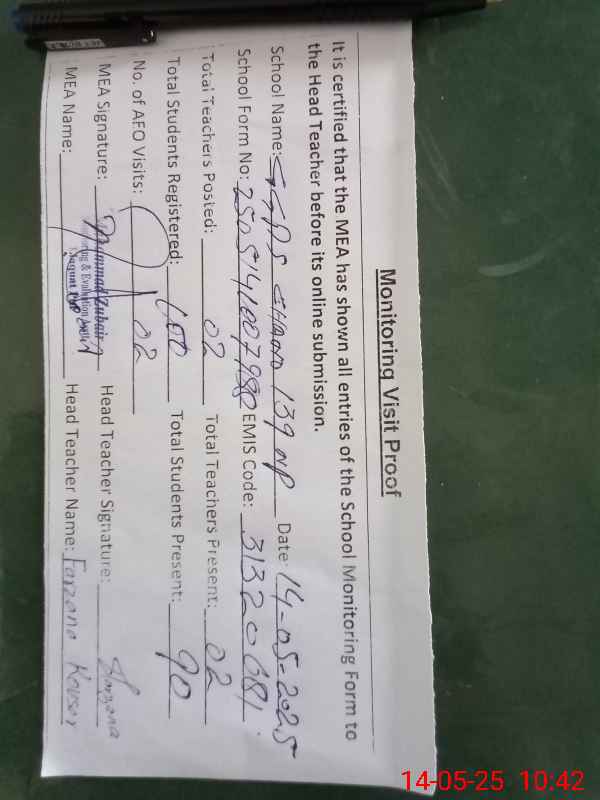 Monitoring Visit Proof
It is certified that the MEA has shown all entries of the School Monitoring Form to
the Head Teacher before its online submission.
School Name: GGPS 139 NP Date: 14-05-2025
School Form No: EMIS Code: 31320681
Total Teachers Posted: 02 Total Teachers Present: 02
Total Students Registered: Total Students Present: 90
No. of AFO Visits: 02
MEA Signature: Head Teacher Signature: Farzana
Muhammad Zubair
Monitoring & Evaluation
MEA Name: Head Teacher Name: Farzana Kousar
14-05-25 10:42